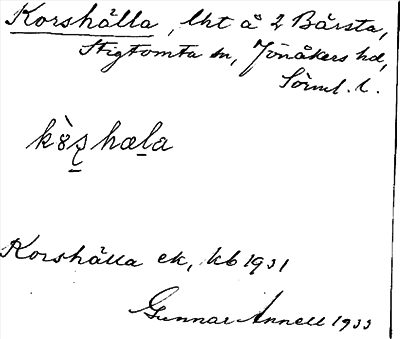 Korshälla, lht å 2 Bårsta,
Stigtomta sn, Jönåkers hd,
Sörml. l.
Korshälla ek, kb 1931
Gunnar Annell 1933